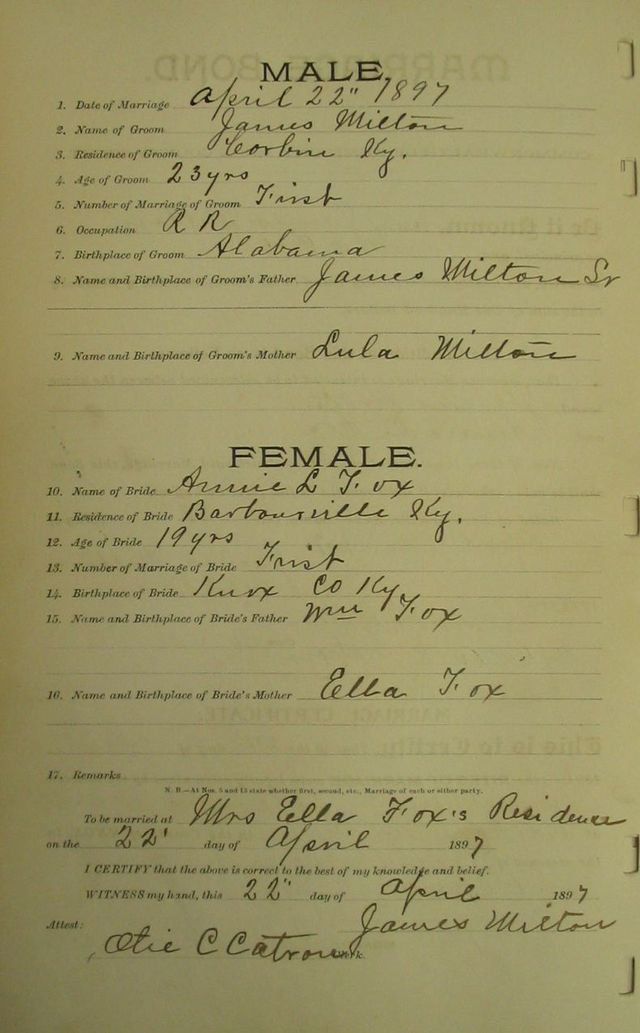 MALE.
1. Date of Marriage April 22" 1897
2. Name of Groom James Milton
3. Residence of Groom Corbin Ky.
4. Age of Groom 23 yrs
5. Number of Marriage of Groom First
6. Occupation R R
7. Birthplace of Groom Alabama
8. Name and Birthplace of Groom's Father James Milton Sr
9. Name and Birthplace of Groom's Mother Lula Milton
FEMALE.
10. Name of Bride Annie L Fox
11. Residence of Bride Barbourville Ky.
12. Age of Bride 19 yrs
13. Number of Marriage of Bride First
14. Birthplace of Bride Knox Co Ky
15. Name and Birthplace of Bride's Father Wm Fox
16. Name and Birthplace of Bride's Mother Ella Fox
17. Remarks
N. B.—At Nos. 5 and 13 state whether first, second, etc., Marriage of each or either party.
To be married at Mrs Ella Fox's Residence
on the 22' day of April 1897
I CERTIFY that the above is correct to the best of my knowledge and belief.
WITNESS my hand, this 22" day of April 1897
James Milton
Attest:
Otie C Catron Clerk.